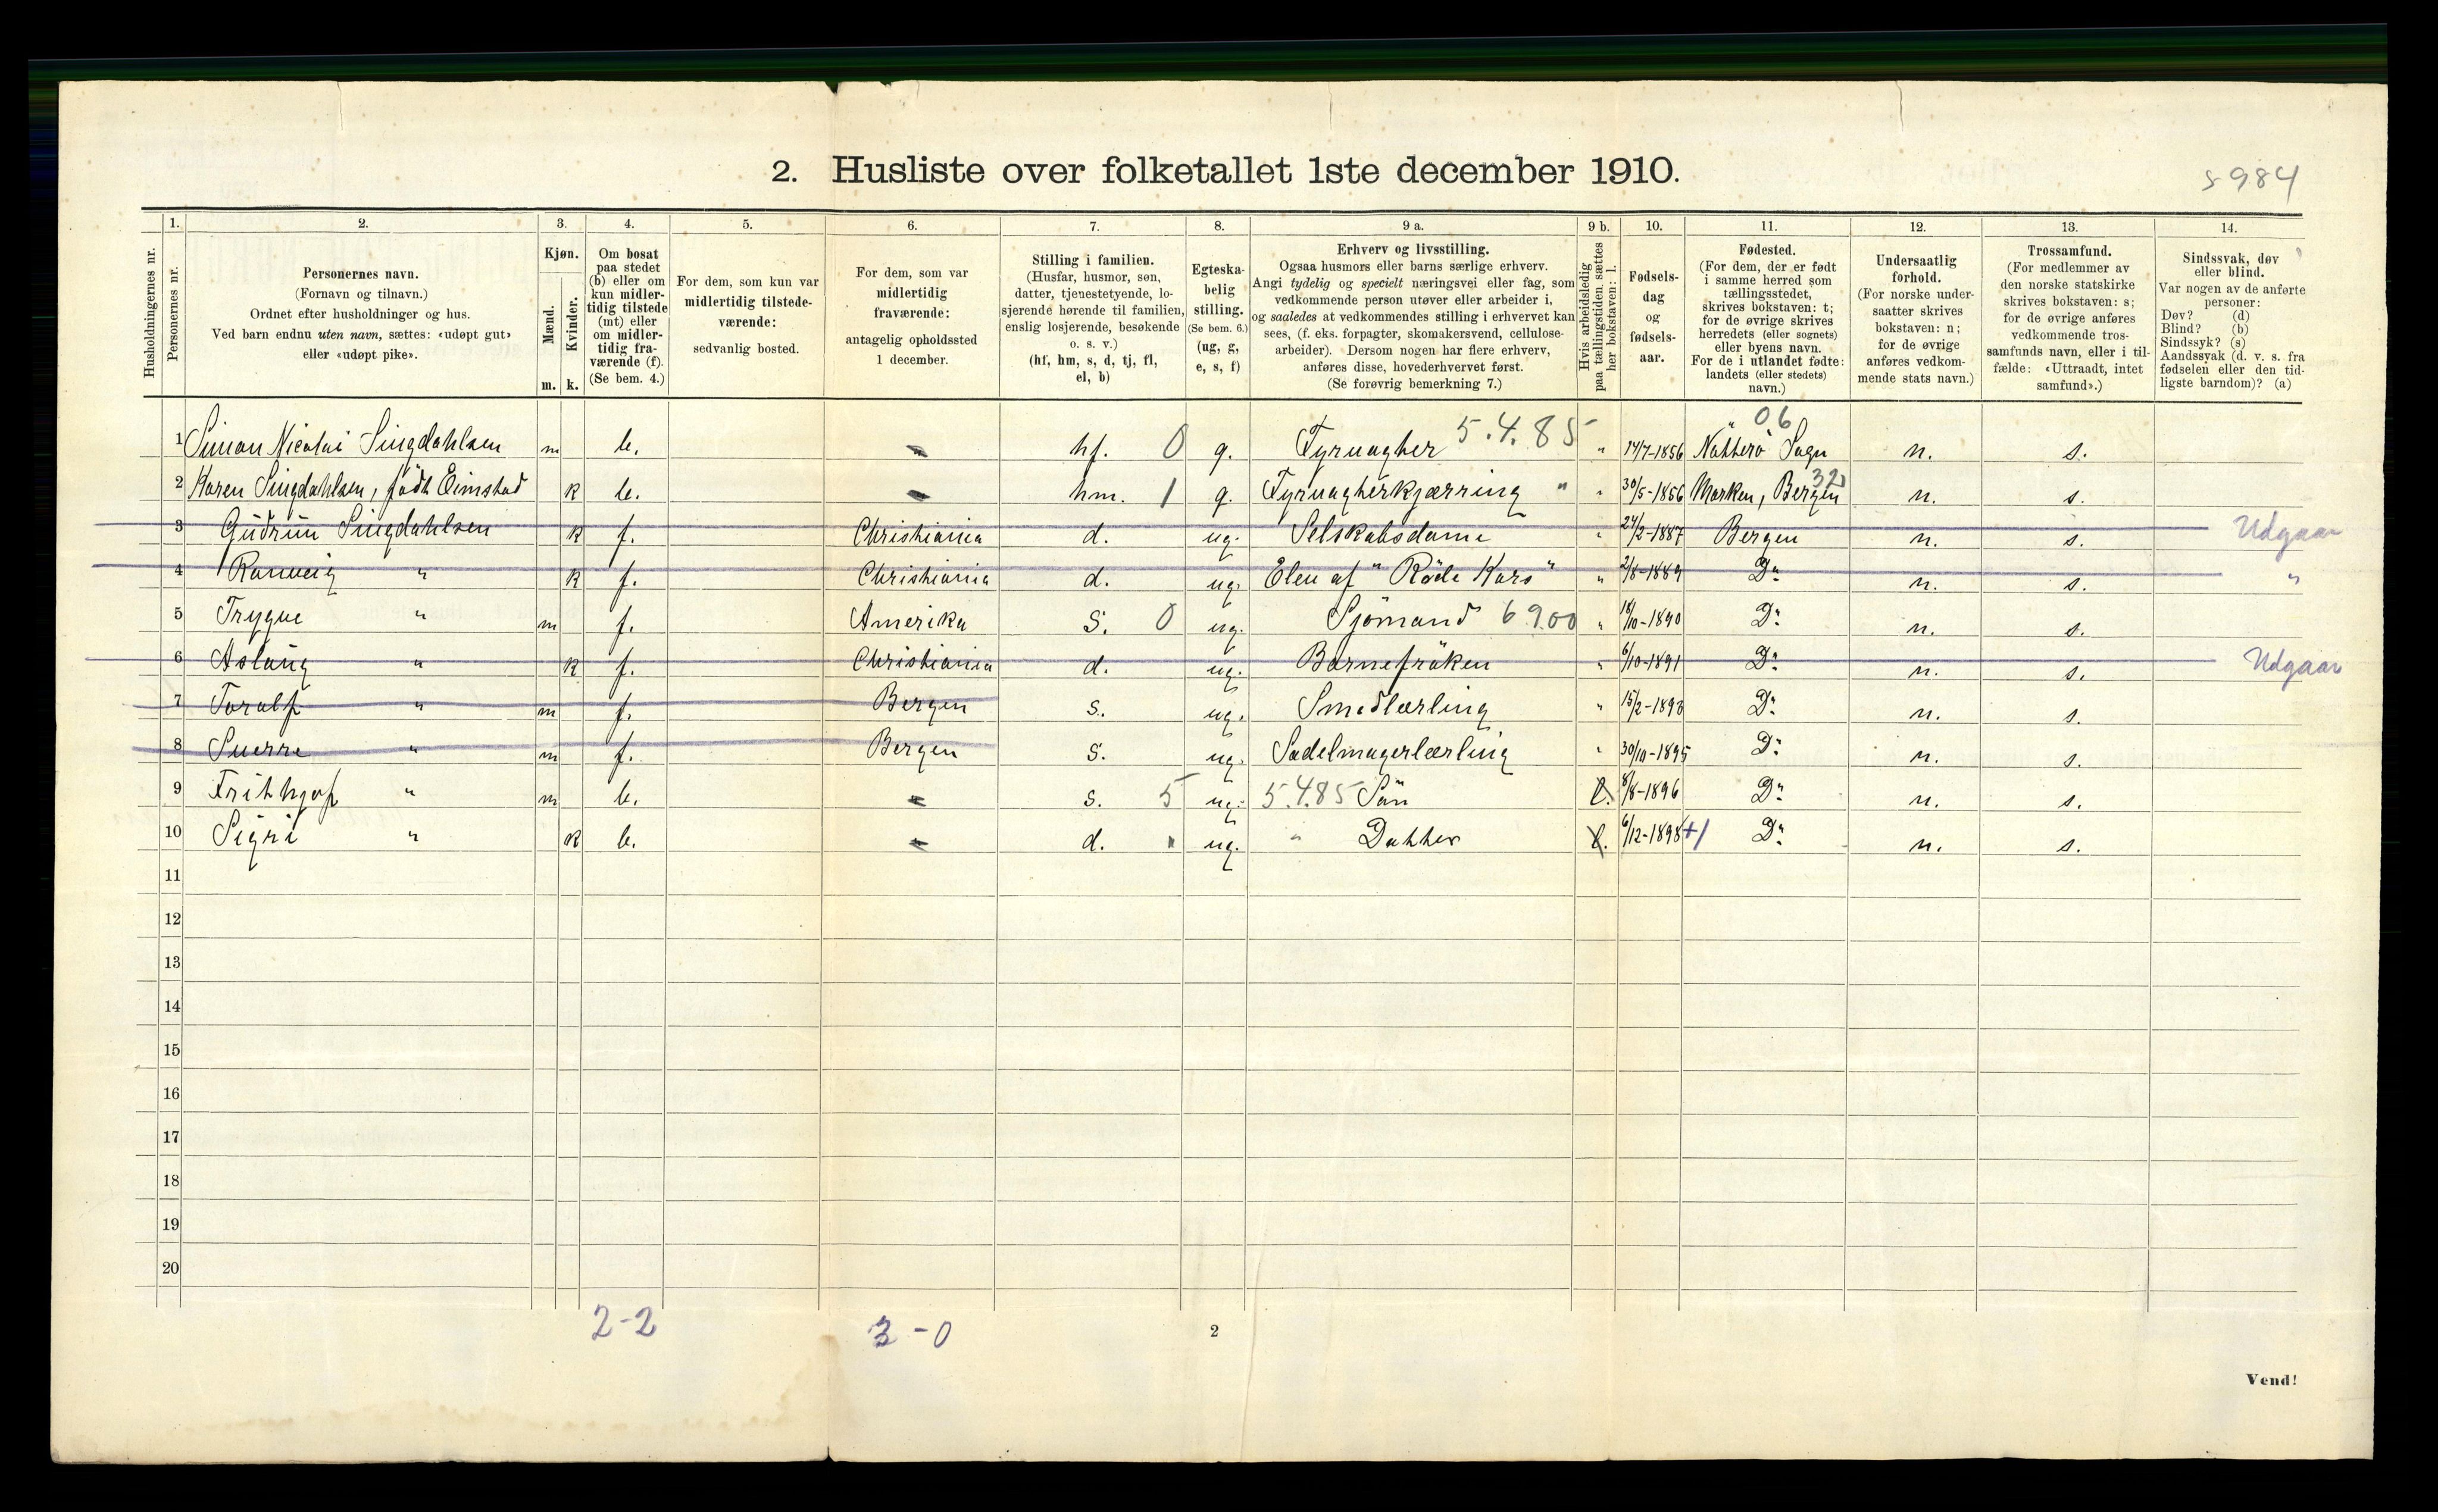 2. Husliste over folketallet 1ste december 1910.
5984
1. 2. 3. 4. 5. 6. 7. 8. 9 a. 9 b. 10. 11. 12. 13. 14.
Husholdningernes nr.
Personernes nr.
Personernes navn.
(Fornavn og tilnavn.)
Ordnet efter husholdninger og hus.
Ved barn endnu uten navn, sættes: «udøpt gut»
eller «udøpt pike».
Kjøn.
Mænd.
Kvinder.
m. k.
Om bosat
paa stedet
(b) eller om
kun midler-
tidig tilstede
(mt) eller
om midler-
tidig fra-
værende (f).
(Se bem. 4.)
For dem, som kun var
midlertidig tilstede-
værende:
sedvanlig bosted.
For dem, som var
midlertidig
fraværende:
antagelig opholdssted
1 december.
Stilling i familien.
(Husfar, husmor, søn,
datter, tjenestetyende, lo-
sjerende hørende til familien,
enslig losjerende, besøkende
o. s. v.)
(hf, hm, s, d, tj, fl,
el, b)
Egteska-
belig
stilling.
(Se bem. 6.)
(ug, g,
e, s, f)
Erhverv og livsstilling.
Ogsaa husmors eller barns særlige erhverv.
Angi tydelig og specielt næringsvei eller fag, som
vedkommende person utøver eller arbeider i,
og saaledes at vedkommendes stilling i erhvervet kan
sees, (f. eks. forpagter, skomakersvend, cellulose-
arbeider). Dersom nogen har flere erhverv,
anføres disse, hovederhvervet først.
(Se forøvrig bemerkning 7.)
Hvis arbeidsledig
paa tællingstiden, sættes
her bokstaven: l.
Fødsels-
dag
og
fødsels-
aar.
Fødested.
(For dem, der er født
i samme herred som
tællingsstedet,
skrives bokstaven: t;
for de øvrige skrives
herredets (eller sognets)
eller byens navn.
For de i utlandet fødte:
landets (eller stedets)
navn.)
Undersaatlig
forhold.
(For norske under-
saatter skrives
bokstaven: n;
for de øvrige
anføres vedkom-
mende stats navn.)
Trossamfund.
(For medlemmer av
den norske statskirke
skrives bokstaven: s;
for de øvrige anføres
vedkommende tros-
samfunds navn, eller i til-
fælde: «Uttraadt, intet
samfund».)
Sindssvak, døv
eller blind.
Var nogen av de anførte
personer:
Døv? (d)
Blind? (b)
Sindssyk? (s)
Aandssvak (d. v. s. fra
fødselen eller den tid-
ligste barndom)? (a)
06
1 Simon Nicolai Singdahlsen m b. - hf. 0 g. Fyrvagter 5.4.85 " 14/7-1856 Nötterö Sogn n. s.
32
2 Karen Singdahlsen, född Eimstad k b. - hm. 1 g. Fyrvagterkjærring " " 30/5-1856 Marken, Bergen n. s.
3 Gudrun Singdahlsen k f. Christiania d. ug. Selskabsdame " 24/2-1887 Bergen n. s. Udgaar
4 Ranveig " k f. Christiania d. ug. Elev af "Röde Kors" " 2/8-1889 Do n. s. "
5 Trygve " m f. Amerika s. 0 ug. Sjömand 6 9.00 " 18/10-1890 Do n. s.
6 Aslaug " k f. Christiania d. ug. Barnefröken " 6/10-1891 Do n. s. Udgaar
7 Toralf " m f. Bergen s. ug. Smedlærling " 15/2-1893 Do n. s.
8 Sverre " m f. Bergen s. ug. Sadelmagerlærling " 30/10-1895 Do n. s.
9 Frithjof " m b. - s. 5 ug. 5.4.85 Sön l. 8/8-1896 Do n. s.
10 Sigri " k b. - d. " ug. " Datter l. 6/12-1898 +1 Do n. s.
11
12
13
14
15
16
17
18
19
20
2-2
3-0
2
Vend!